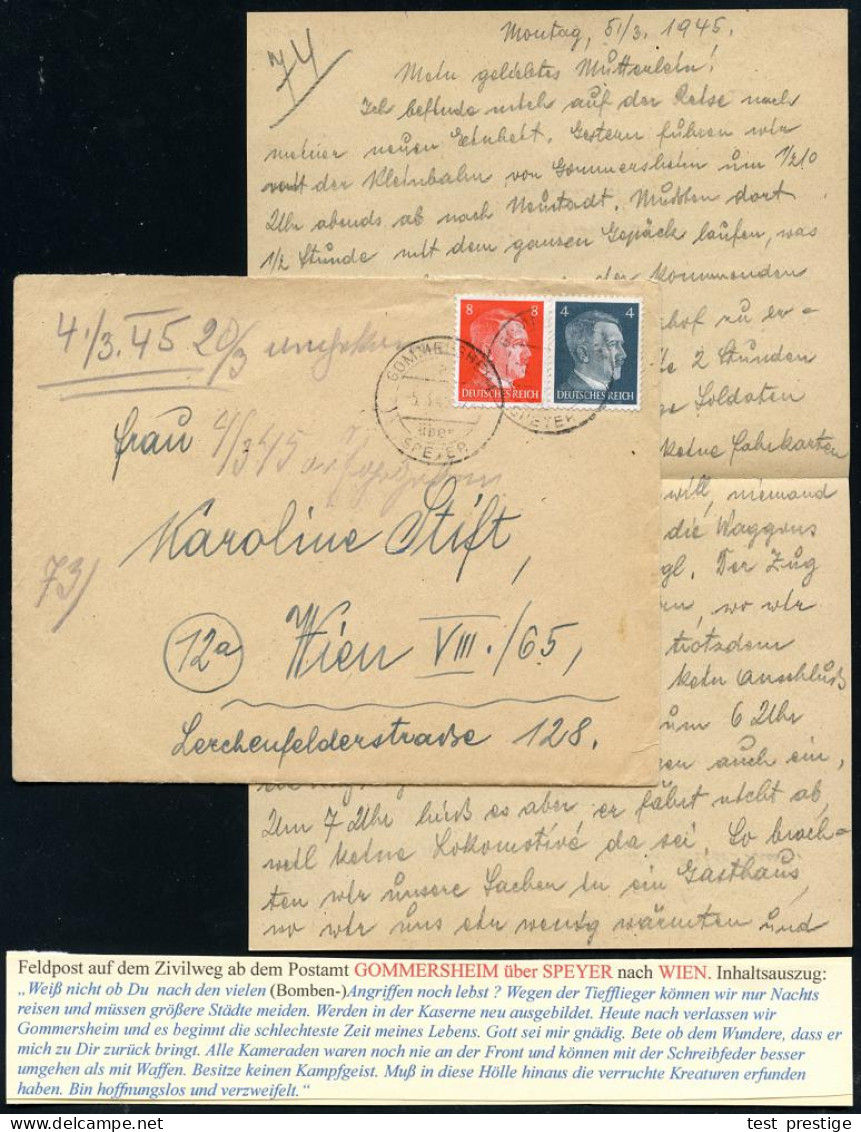 74
Montag, 5./3. 1945.
Mein geliebtes Mütterlein!
Ich befinde mich auf der Reise nach
meiner neuen Einheit. Gestern fuhren wir
mit der Kleinbahn von Gommersheim um 1/2 10
Uhr abends ab nach Neustadt. Mußten dort
1/2 Stunde mit dem ganzen Gepäck laufen, was
der kommenden
hof zu er-
2 Stunden
Soldaten
keine Fahrkarten
will, niemand
die Waggons
Der Zug
wo wir
trotzdem
kein Anschluß
um 6 Uhr
auch ein,
Um 7 Uhr hieß es aber, er fährt nicht ab,
weil keine Lokomotive da sei. So brach-
ten wir unsere Sachen in ein Gasthaus,
wo wir uns ein wenig wärmten und
4./3.45 20/3
8 8 4 4
DEUTSCHES REICH DEUTSCHES REICH
GOMMERSHEIM
über
SPEYER
SPEYER
Frau
Karoline Stift,
73/
12a Wien VIII./65,
Lerchenfelderstraße 128.
Feldpost auf dem Zivilweg ab dem Postamt GOMMERSHEIM über SPEYER nach WIEN. Inhaltsauszug:
„Weiß nicht ob Du nach den vielen (Bomben-)Angriffen noch lebst ? Wegen der Tiefflieger können wir nur Nachts
reisen und müssen größere Städte meiden. Werden in der Kaserne neu ausgebildet. Heute nach verlassen wir
Gommersheim und es beginnt die schlechteste Zeit meines Lebens. Gott sei mir gnädig. Bete ob dem Wundere, dass er
mich zu Dir zurück bringt. Alle Kameraden waren noch nie an der Front und können mit der Schreibfeder besser
umgehen als mit Waffen. Besitze keinen Kampfgeist. Muß in diese Hölle hinaus die verruchte Kreaturen erfunden
haben. Bin hoffnungslos und verzweifelt.“
test_prestige